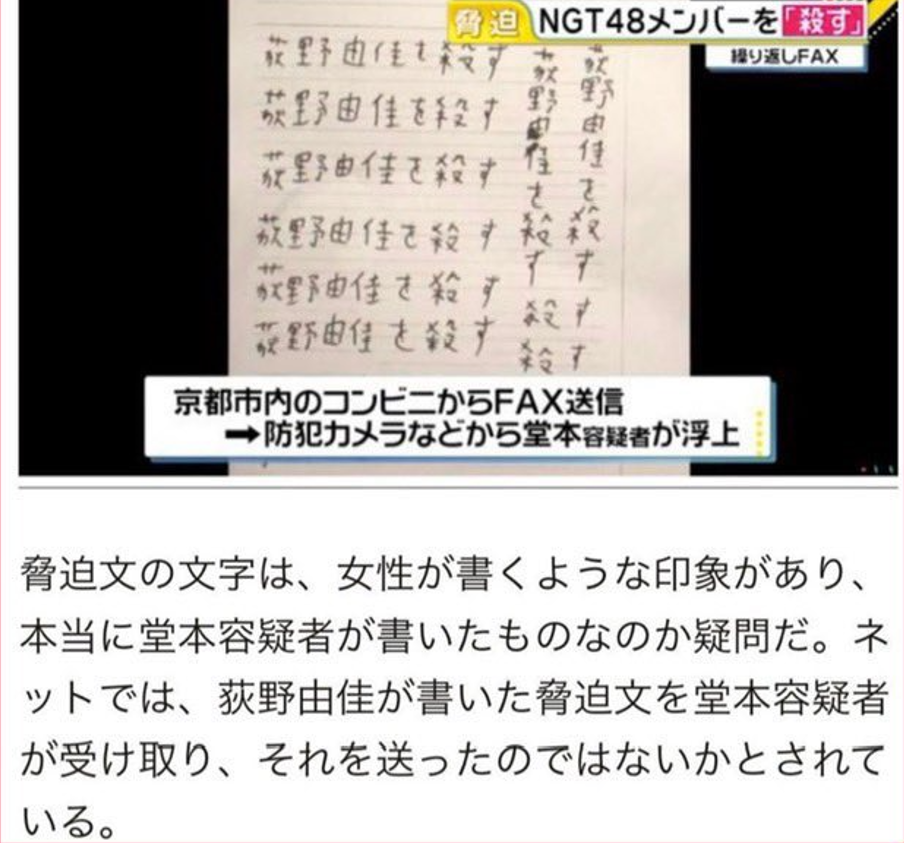 脅迫 NGT48メンバーを「殺す」
繰り返しFAX
荻野由佳を殺す
荻野由佳を殺す
荻野由佳を殺す
荻野由佳を殺す
荻野由佳を殺す
荻野由佳を殺す
荻野由佳を殺す
荻野由佳を殺す
殺す
殺す
京都市内のコンビニからFAX送信
➡防犯カメラなどから堂本容疑者が浮上
脅迫文の文字は、女性が書くような印象があり、
本当に堂本容疑者が書いたものなのか疑問だ。ネ
ットでは、荻野由佳が書いた脅迫文を堂本容疑者
が受け取り、それを送ったのではないかとされて
いる。